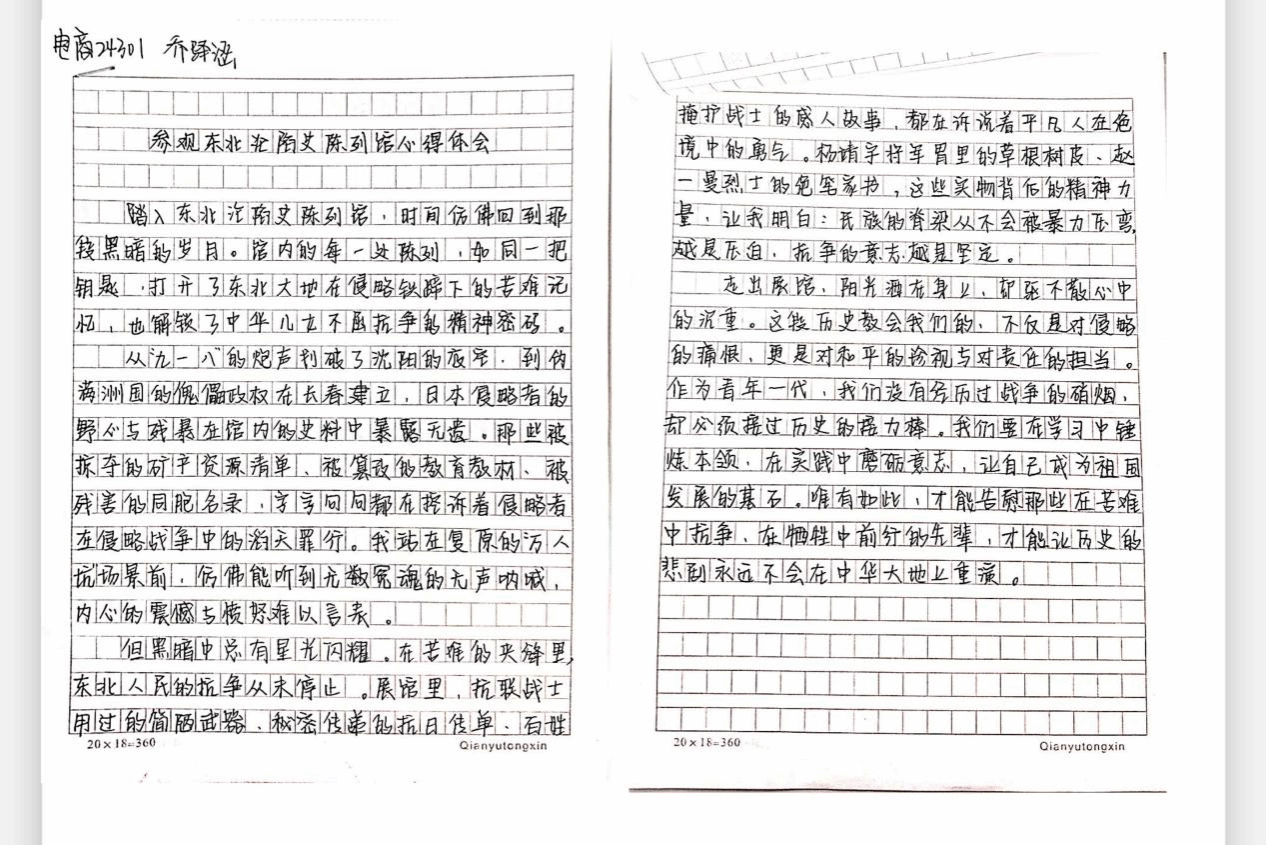 电商24301 乔泽涵
参观东北沦陷史陈列馆心得体会
踏入东北沦陷史陈列馆，时间仿佛回到那
段黑暗的岁月。馆内的每一处陈列，如同一把
钥匙，打开了东北大地在侵略铁蹄下的苦难记
忆，也解锁了中华儿女不屈抗争的精神密码。
从“九一八”的炮声划破了沈阳的夜空，到伪
满洲国的傀儡政权在长春建立，日本侵略者的
野心与残暴在馆内的史料中暴露无遗。那些被
掠夺的矿产资源清单、被篡改的教育教材、被
残害的同胞名录，字字句句都在控诉着侵略者
在侵略战争中的滔天罪行。我站在复原的万人
坑场景前，仿佛能听到无数冤魂的无声呐喊，
内心的震撼与愤怒难以言表。
但黑暗中总有星光闪耀。在苦难的夹缝里，
东北人民的抗争从未停止。展馆里，抗联战士
用过的简陋武器、秘密传递的抗日传单、百姓
20×18=360
Qianyutongxin
掩护战士的感人故事，都在诉说着平凡人在绝
境中的勇气。杨靖宇将军胃里的草根树皮、赵
一曼烈士的绝笔家书，这些实物背后的精神力
量，让我明白：民族的脊梁从不会被暴力压弯，
越是压迫，抗争的意志越是坚定。
走出展馆，阳光洒在身上，却驱不散心中
的沉重。这段历史教会我们的，不仅是对侵略
的痛恨，更是对和平的珍视与对责任的担当。
作为青年一代，我们没有经历过战争的硝烟，
却必须接过历史的接力棒。我们要在学习中锤
炼本领，在实践中磨砺意志，让自己成为祖国
发展的基石。唯有如此，才能告慰那些在苦难
中抗争、在牺牲中前行的先辈，才能让历史的
悲剧永远不会在中华大地上重演。
20×18=360
Qianyutongxin